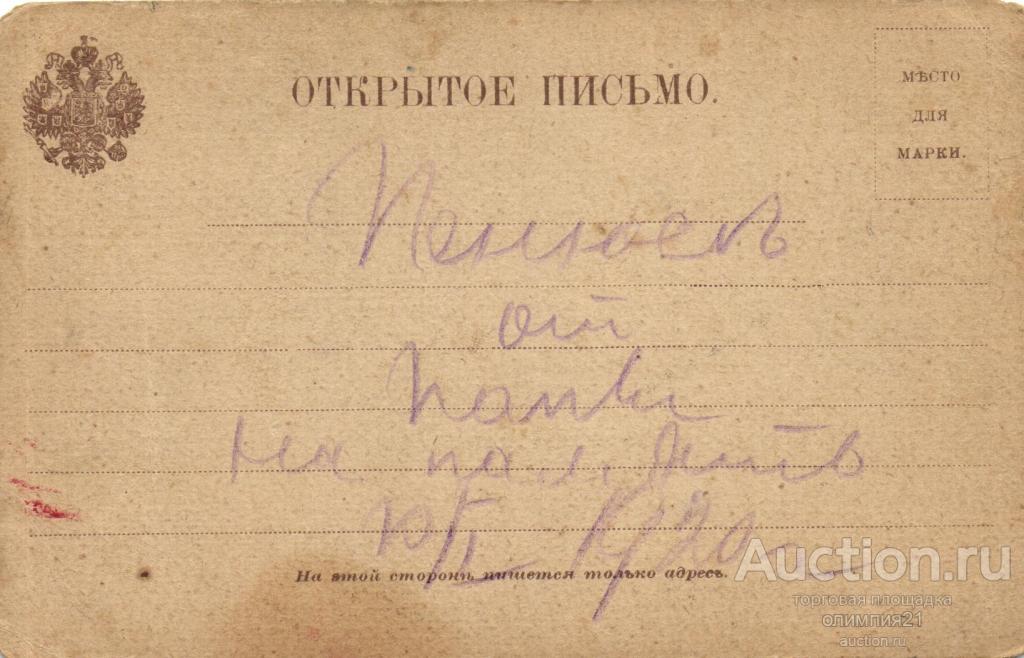 ОТКРЫТОЕ ПИСЬМО.
МѢСТО
ДЛЯ
МАРКИ.
от
Папы
На память
На этой сторонѣ пишется только адресъ.
Auction.ru
торговая площадка
олимпия21
auction.ru